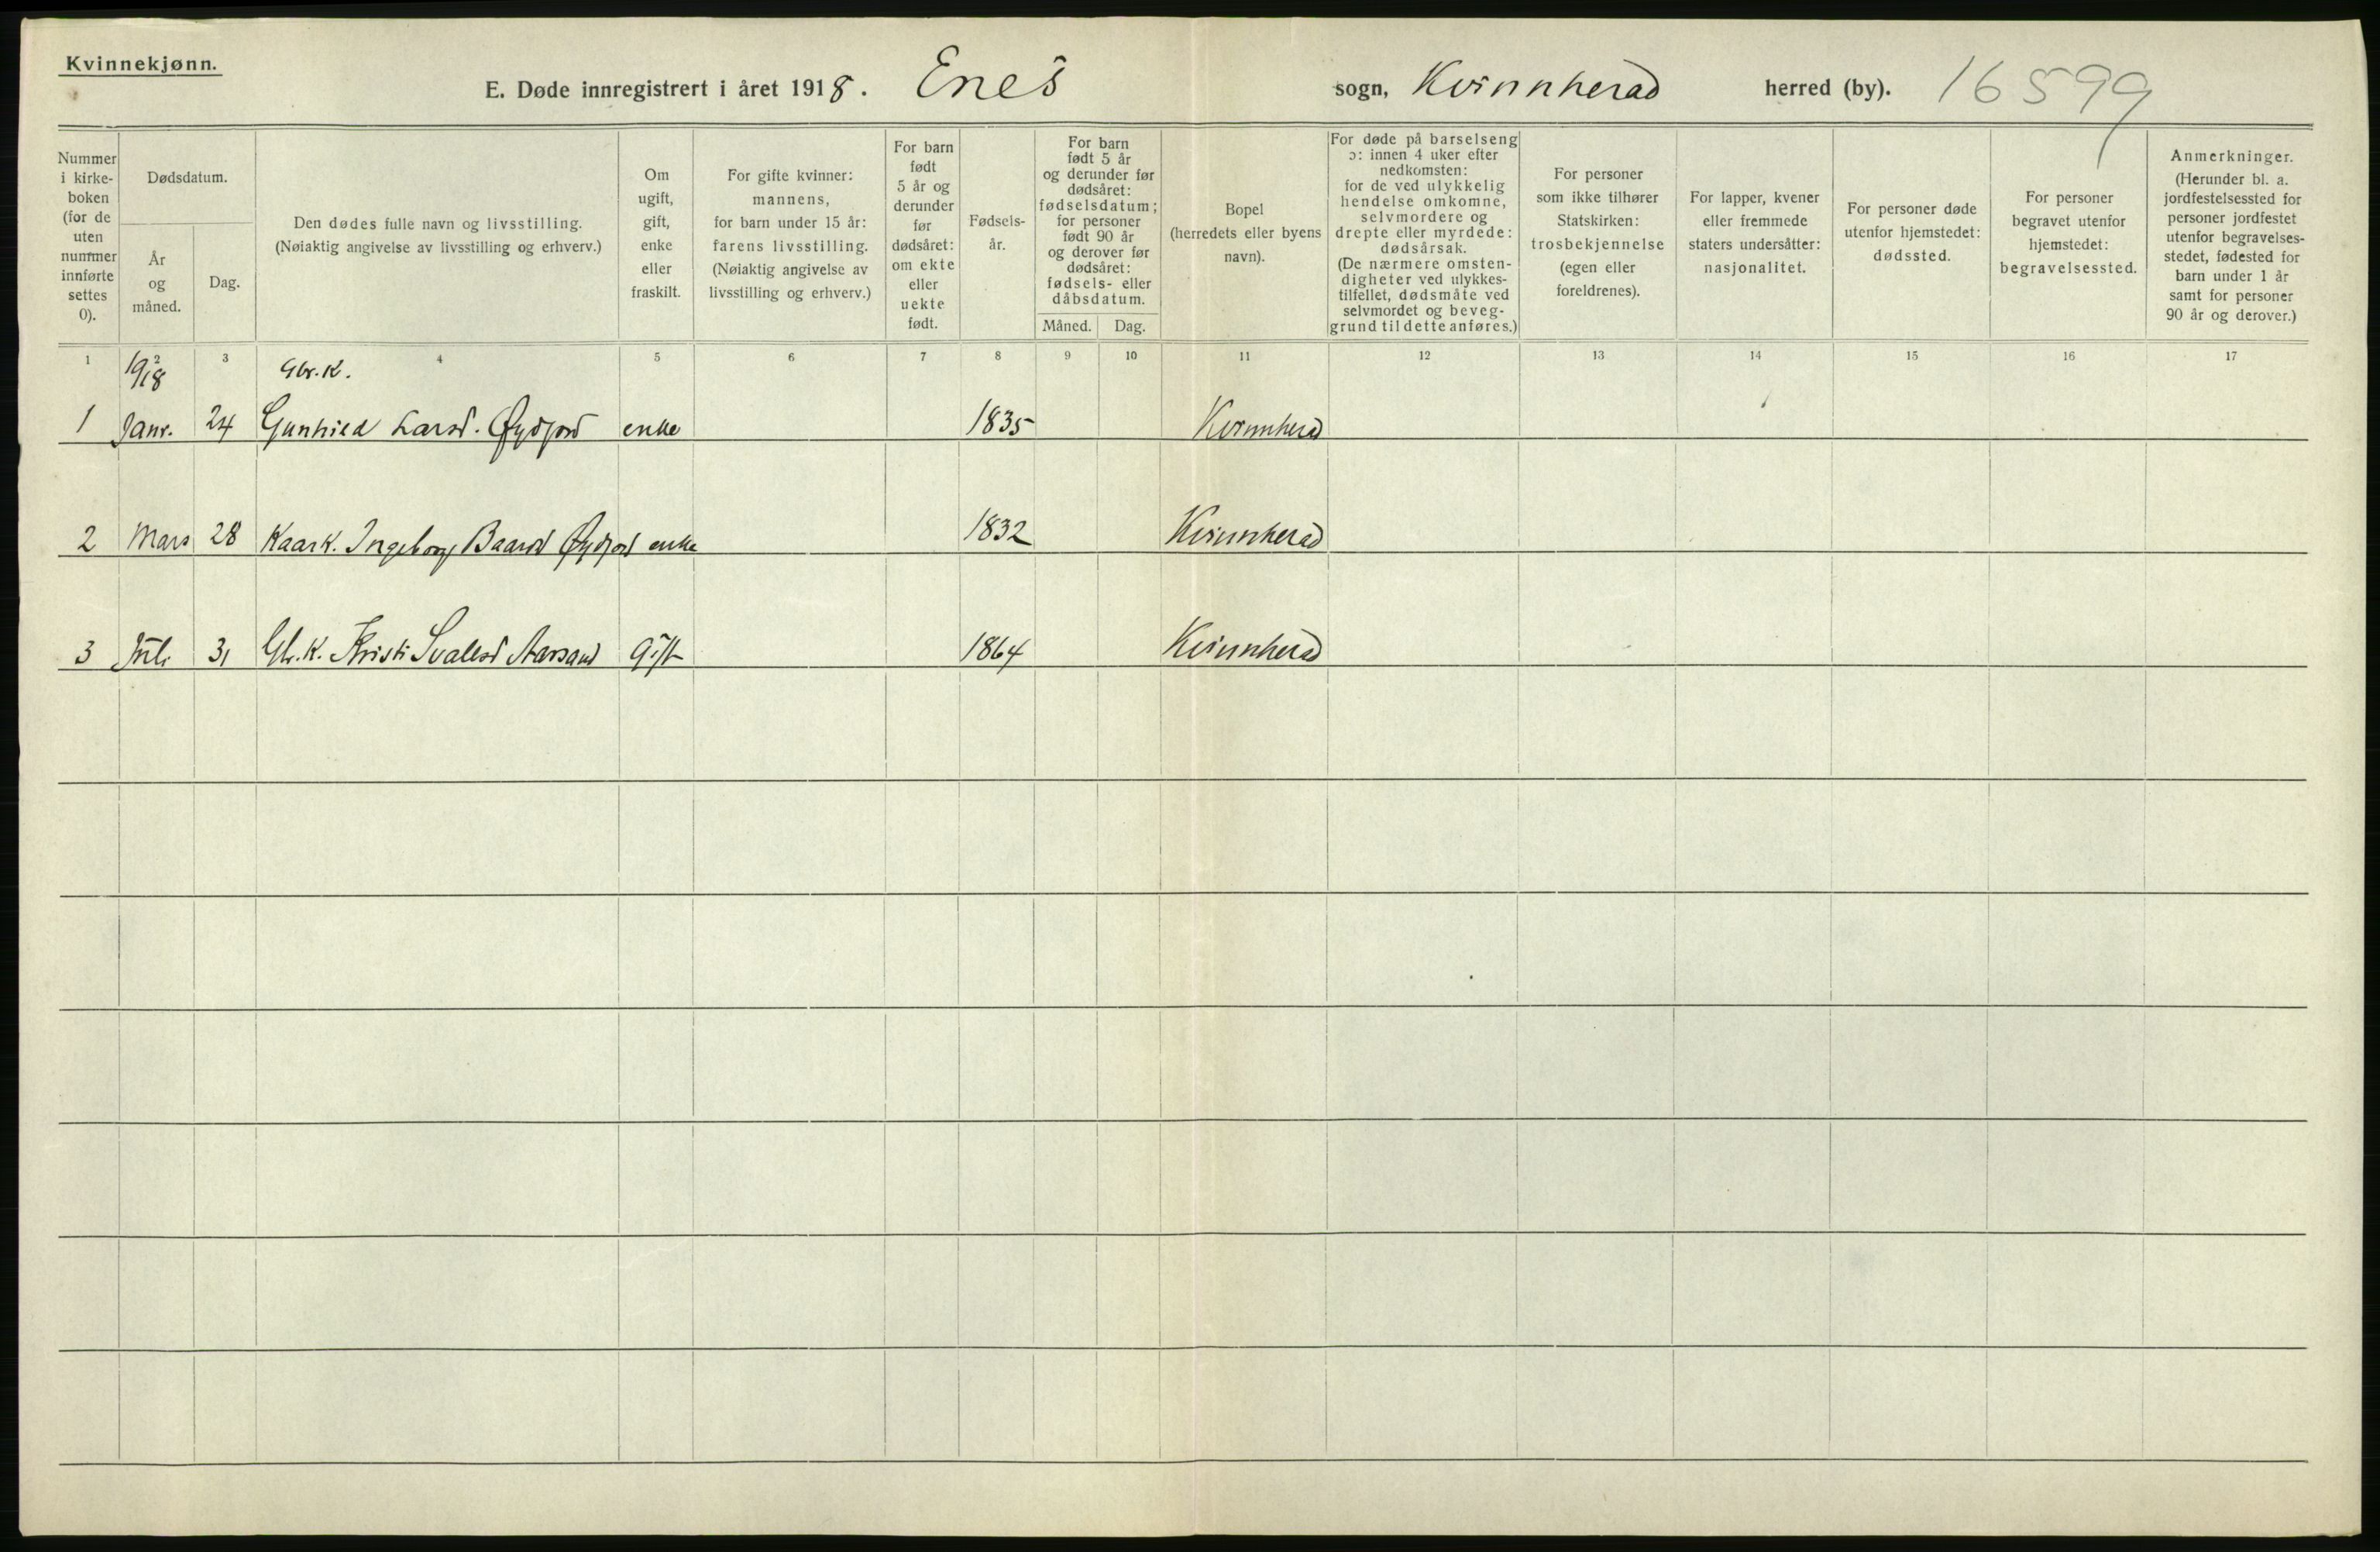 Kvinnekjønn.
E. Døde innregistrert i året 1918. Enes sogn, Kvinnherad herred (by). 16599
Nummer i kirkeboken (for de uten nummer innførte settes 0).
Dødsdatum.
År og måned.
Dag.
Den dødes fulle navn og livsstilling.
(Nøiaktig angivelse av livsstilling og erhverv.)
Om ugift, gift, enke eller fraskilt.
For gifte kvinner: mannens, for barn under 15 år: farens livsstilling. (Nøiaktig angivelse av livsstilling og erhverv.)
For barn født 5 år og derunder før dødsåret: om ekte eller uekte født.
Fødsels-år.
For barn født 5 år og derunder før dødsåret: fødselsdatum; for personer født 90 år og derover før dødsåret: fødsels- eller dåbsdatum.
Måned. Dag.
Bopel (herredets eller byens navn).
For døde på barselseng ɔ: innen 4 uker efter nedkomsten: for de ved ulykkelig hendelse omkomne, selvmordere og drepte eller myrdede: dødsårsak. (De nærmere omsten-digheter ved ulykkes-tilfellet, dødsmåte ved selvmordet og beveg-grund til dette anføres.)
For personer som ikke tilhører Statskirken: trosbekjennelse (egen eller foreldrenes).
For lapper, kvener eller fremmede staters undersåtter: nasjonalitet.
For personer døde utenfor hjemstedet: dødssted.
For personer begravet utenfor hjemstedet: begravelsessted.
Anmerkninger. (Herunder bl. a. jordfestelsessted for personer jordfestet utenfor begravelses-stedet, fødested for barn under 1 år samt for personer 90 år og derover.)
1 2 3 4 5 6 7 8 9 10 11 12 13 14 15 16 17
1918 Gbr.K.
1 Janr. 24 Gunhild Larsd. Øydfjord enke 1835 Kvinnherad
2 Mars 28 Kaark. Ingeborg Baardsd Øydfjord enke 1832 Kvinnherad
3 Juli 31 Gbr.K. Kristi Svalesd Aarsand Gift 1864 Kvinnherad